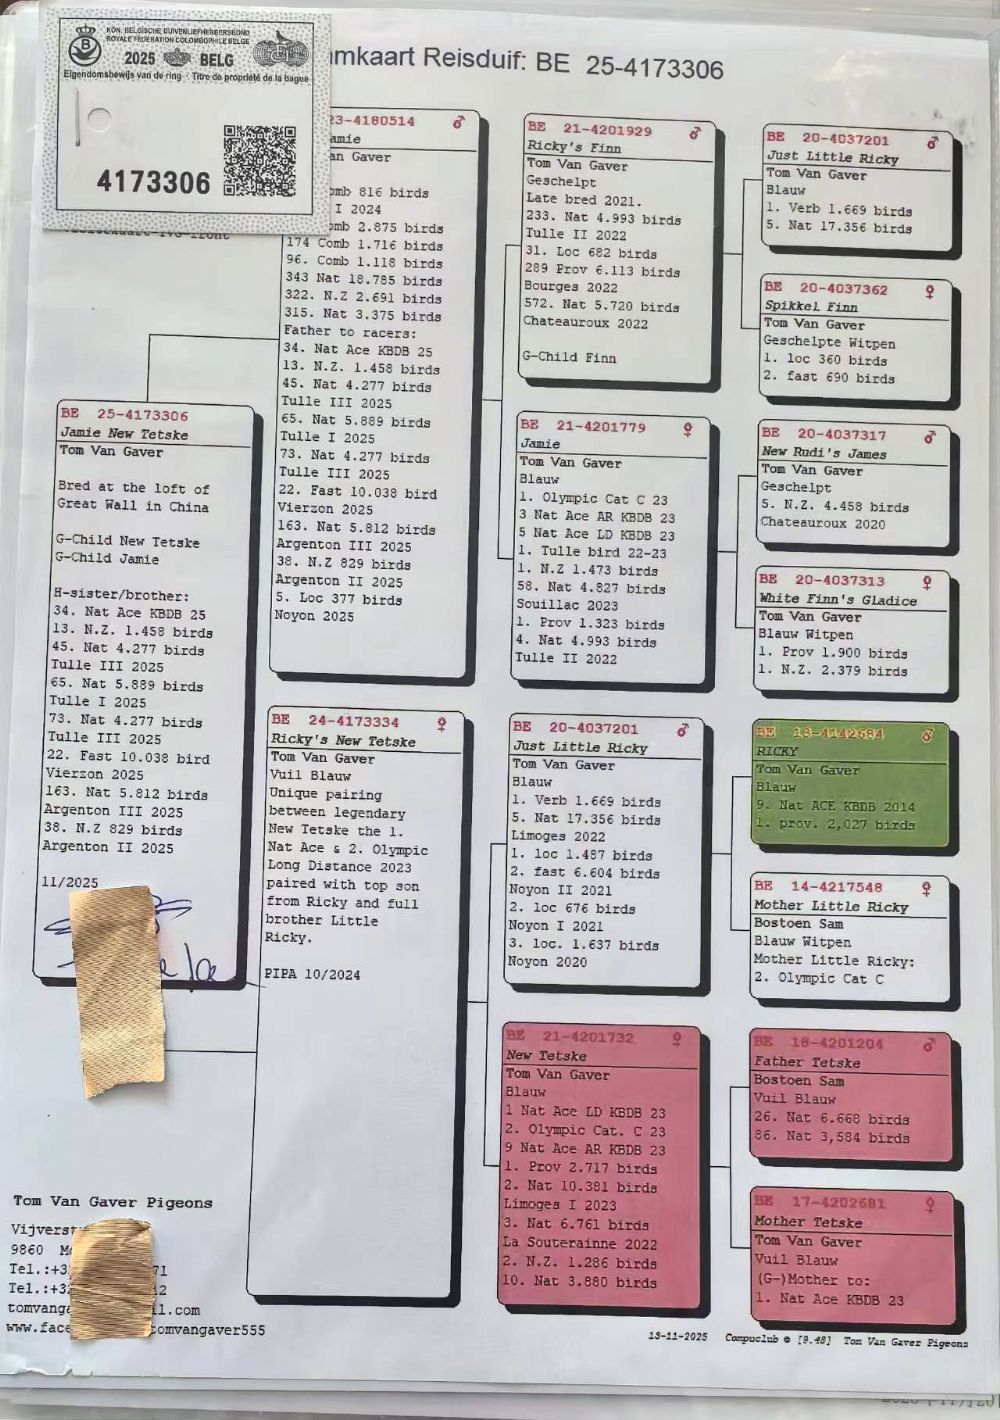 KON. BELGISCHE DUIVENLIEFHEBBERSBOND
ROYALE FEDERATION COLOMBOPHILE BELGE
2025 BELG
Eigendomsbewijs van de ring - Titre de propriété de la bague
4173306
mkaart Reisduif: BE 25-4173306
BE 25-4173306
Jamie New Tetske
Tom Van Gaver
Bred at the loft of
Great Wall in China
G-Child New Tetske
G-Child Jamie
H-sister/brother:
34. Nat Ace KBDB 25
13. N.Z. 1.458 birds
45. Nat 4.277 birds
Tulle III 2025
65. Nat 5.889 birds
Tulle I 2025
73. Nat 4.277 birds
Tulle III 2025
22. Fast 10.038 bird
Vierzon 2025
163. Nat 5.812 birds
Argenton III 2025
38. N.Z 829 birds
Argenton II 2025
11/2025
23-4180514 ♂
amie
an Gaver
omb 816 birds
I 2024
omb 2.875 birds
174 Comb 1.716 birds
96. Comb 1.118 birds
343 Nat 18.785 birds
322. N.Z 2.691 birds
315. Nat 3.375 birds
Father to racers:
34. Nat Ace KBDB 25
13. N.Z. 1.458 birds
45. Nat 4.277 birds
Tulle III 2025
65. Nat 5.889 birds
Tulle I 2025
73. Nat 4.277 birds
Tulle III 2025
22. Fast 10.038 bird
Vierzon 2025
163. Nat 5.812 birds
Argenton III 2025
38. N.Z 829 birds
Argenton II 2025
5. Loc 377 birds
Noyon 2025
BE 24-4173334 ♀
Ricky's New Tetske
Tom Van Gaver
Vuil Blauw
Unique pairing
between legendary
New Tetske the 1.
Nat Ace & 2. Olympic
Long Distance 2023
paired with top son
from Ricky and full
brother Little
Ricky.
PIPA 10/2024
BE 21-4201929 ♂
Ricky's Finn
Tom Van Gaver
Geschelpt
Late bred 2021.
233. Nat 4.993 birds
Tulle II 2022
31. Loc 682 birds
289 Prov 6.113 birds
Bourges 2022
572. Nat 5.720 birds
Chateauroux 2022
G-Child Finn
BE 21-4201779 ♀
Jamie
Tom Van Gaver
Blauw
1. Olympic Cat C 23
3 Nat Ace AR KBDB 23
5 Nat Ace LD KBDB 23
1. Tulle bird 22-23
1. N.Z 1.473 birds
58. Nat 4.827 birds
Souillac 2023
1. Prov 1.323 birds
4. Nat 4.993 birds
Tulle II 2022
BE 20-4037201 ♂
Just Little Ricky
Tom Van Gaver
Blauw
1. Verb 1.669 birds
5. Nat 17.356 birds
Limoges 2022
1. loc 1.487 birds
2. fast 6.604 birds
Noyon II 2021
2. loc 676 birds
Noyon I 2021
3. loc. 1.637 birds
Noyon 2020
BE 21-4201732 ♀
New Tetske
Tom Van Gaver
Blauw
1 Nat Ace LD KBDB 23
2. Olympic Cat. C 23
9 Nat Ace AR KBDB 23
1. Prov 2.717 birds
2. Nat 10.381 birds
Limoges I 2023
3. Nat 6.761 birds
La Souterainne 2022
2. N.Z. 1.286 birds
10. Nat 3.880 birds
BE 20-4037201 ♂
Just Little Ricky
Tom Van Gaver
Blauw
1. Verb 1.669 birds
5. Nat 17.356 birds
BE 20-4037362 ♀
Spikkel Finn
Tom Van Gaver
Geschelpte Witpen
1. loc 360 birds
2. fast 690 birds
BE 20-4037317 ♂
New Rudi's James
Tom Van Gaver
Geschelpt
5. N.Z. 4.458 birds
Chateauroux 2020
BE 20-4037313 ♀
White Finn's Gladice
Tom Van Gaver
Blauw Witpen
1. Prov 1.900 birds
1. N.Z. 2.379 birds
BE 13-4142684 ♂
RICKY
Tom Van Gaver
Blauw
9. Nat ACE KBDB 2014
1. prov. 2,027 birds
BE 14-4217548 ♀
Mother Little Ricky
Bostoen Sam
Blauw Witpen
Mother Little Ricky:
2. Olympic Cat C
BE 18-4201204 ♂
Father Tetske
Bostoen Sam
Vuil Blauw
26. Nat 6.668 birds
86. Nat 3,584 birds
BE 17-4202681 ♀
Mother Tetske
Tom Van Gaver
Vuil Blauw
(G-)Mother to:
1. Nat Ace KBDB 23
Tom Van Gaver Pigeons
Vijverst
9860 M
Tel.:+3 71
Tel.:+32 12
tomvanga il.com
www.face tomvangaver555
13-11-2025 Compuclub © [9.48] Tom Van Gaver Pigeons